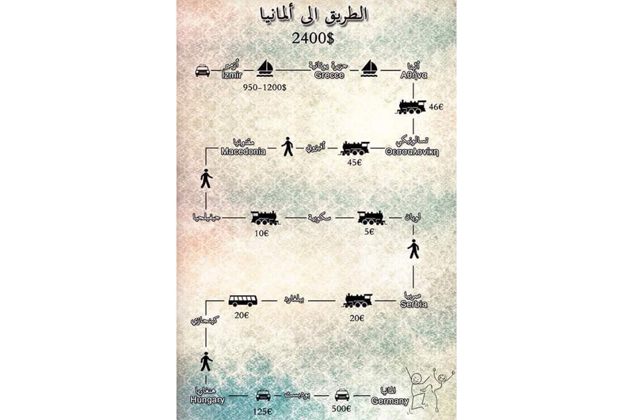 الطريق الى ألمانيا
2400$
أزمير
Izmir
950-1200$
جزيرة يونانية
Greece
أثينا
Αθήνα
46€
تسالونيكي
Θεσσαλονίκη
45€
أفزوني
مقدونيا
Macedonia
جيفيلجيا
10€
سكوبية
5€
لويان
صربيا
Serbia
20€
بيلغراد
20€
كينجازي
هنغاريا
Hungary
125€
بودبست
500€
المانيا
Germany